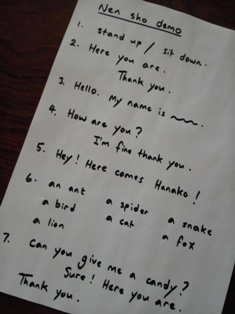 Nen sho demo
1. stand up / sit down.
2. Here you are.
Thank you.
3. Hello. My name is ~~~.
4. How are you?
I'm fine thank you.
5. Hey! Here comes Hanako!
6. an ant a spider a snake
a bird a cat a fox
a lion
7. Can you give me a candy?
Sure! Here you are.
Thank you.